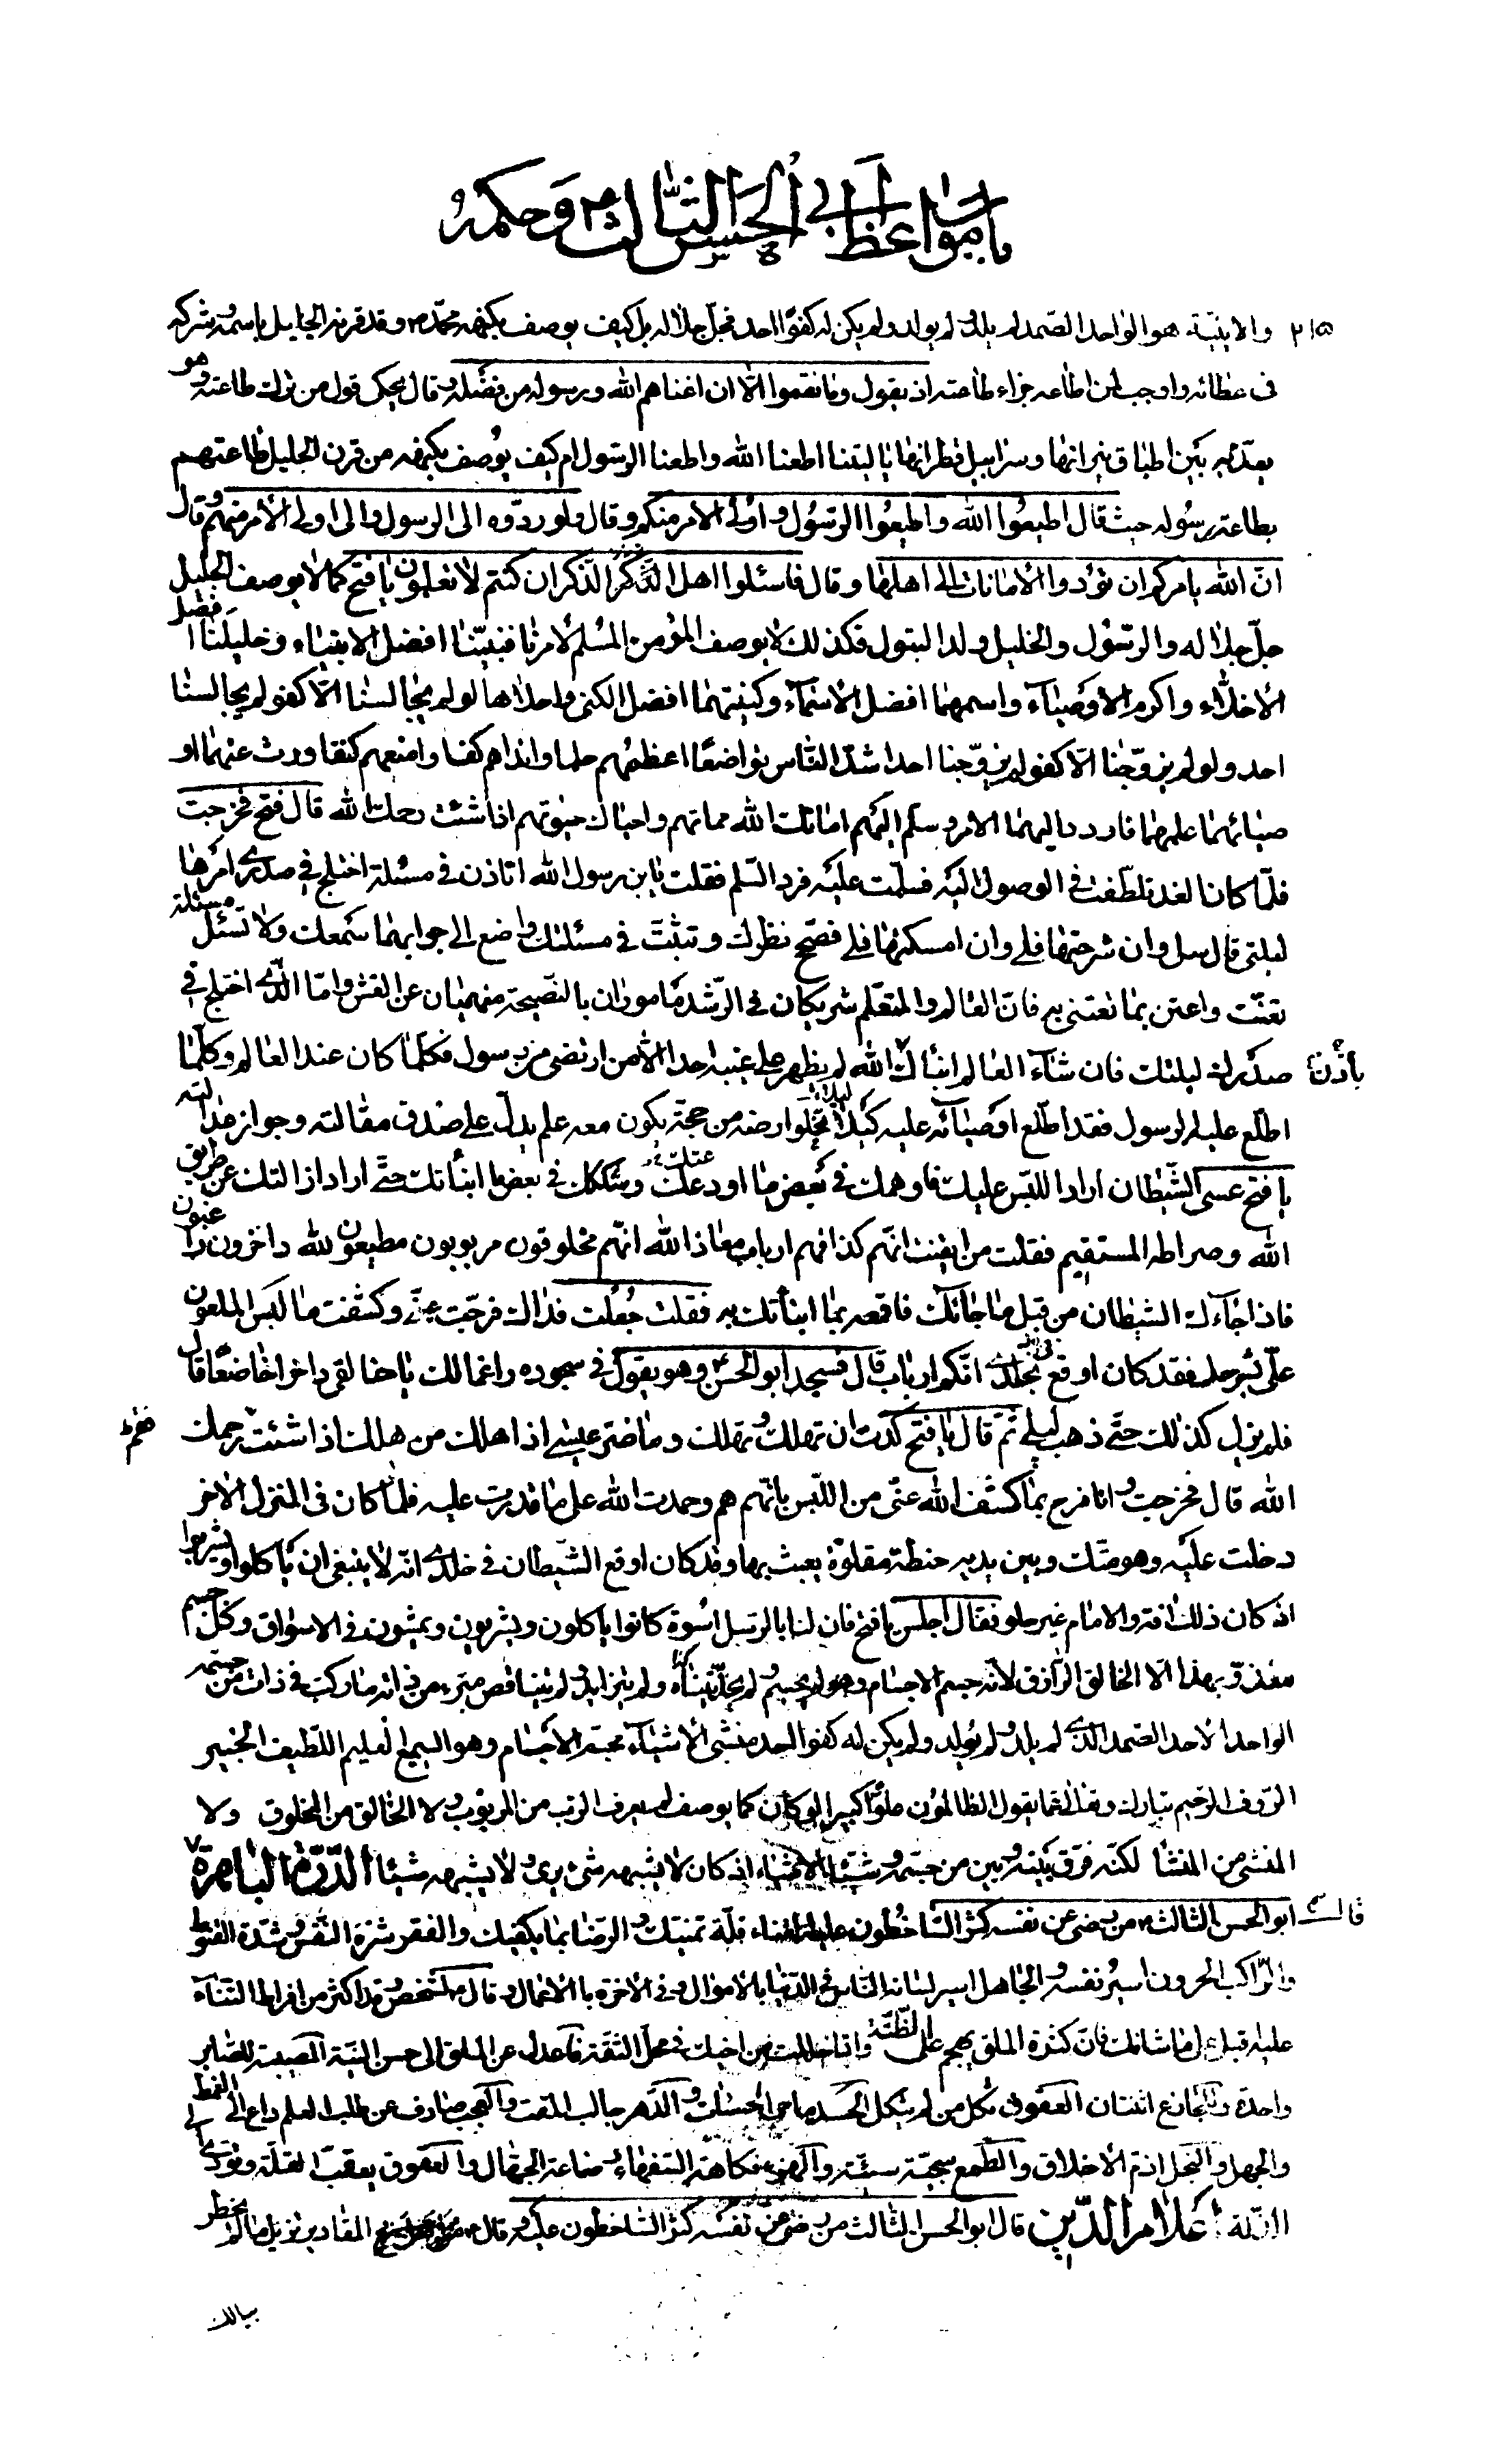 باب مواعظ أبي الحسن الثالث ع وحكمه
٢١٥ والاينيّة هو الواحد الصمد لم يلد ولم يولد ولم يكن له كفوا احد فجلّ جلاله بل كيف يوصف بكنهه محمّد ص وقد قرنه الجليل باسمه وشركه
فى عطائه واوجب لمن اطاعه جزاء طاعته اذ يقول وما نقموا الّا ان اغناهم الله ورسوله من فضله وقال يحكى قول من ترك طاعته وهو
يعذّبه بين اطباق نيرانها وسرابيل قطرانها يا ليتنا اطعنا الله واطعنا الرسولا ام كيف يوصف بكنهه من قرن الجليل طاعتهم
بطاعة رسوله حيث قال اطيعوا الله واطيعوا الرسول واولى الامر منكم وقال ولو ردّوه الى الرسول والى اولى الأمر منهم وقال
انّ الله يامركم ان تؤدوا الأمانات الى اهلها وقال فاسئلوا اهل الذكر ان كنتم لا تعلمون يا فتح كما لا يوصف الجليل
جلّ جلاله والرسول والخليل وولد البتول فكذلك لا يوصف المؤمن المسلم لأمرنا فنبيّنا افضل الانبياء وخليلنا افضل
الأخلّاء واكرم الأوصياء واسمهما افضل الأسماء وكنيتهما افضل الكنى واحلاها لو لم يجالسنا الّا كفو لم يجالسنا
احد ولو لم يزوّجنا الّا كفو لم يزوّجنا احد اشدّ النّاس تواضعًا اعظمهم حلما وانداهم كفا وامنعهم كنفا ورث عنهما او
صيائهما علمهما فاردد اليهما الامر وسلّم اليهم اماتك الله مماتهم واحياك حيوتهم اذا شئت رحمك الله قال فتح فخرجت
فلمّا كان الغد تلطّفت فى الوصول اليه فسلّمت عليه فردّ السّلم فقلت يا بن رسول الله اتاذن فى مسئلة اختلج فى صدرى امرها
ليلتى قال سل وان شرحتها فلى وان امسكتها فلى فصحّح نظرك وتثبّت فى مسئلتك واضع الى جوابها سمعك ولا تسئل مسئلة
تعنّت واعتن بما تعتنى به فانّ العالم والمتعلّم شريكان فى الرّشد مأموران بالنصيحة منهيّان عن الغش وامّا الذى اختلج فى
صدرك ليلتك فان شاء العالم انباك باذن الله لم يظهر على غيبه احدا الّا من ارتضى من رسول فكلّما كان عند العالم وكلّما
اطّلع عليه الرسول فقد اطّلع اوصيائه عليه كيلا تخلو ارضه من حجّة يكون معه علم يدلّ على صدق مقالته وجواز عدالته
يا فتح عسى الشّيطان اراد اللبس عليك فاوهمك فى بعض ما اودعتك وشككك فى بعض ما انبأتك حتّى اراد ازالتك عن طريق
الله وصراطه المستقيم فقلت من ايقنت انّهم كذا فهم ارباب معاذ الله انّهم مخلوقون مربوبون مطيعون لله داخرون راغبون
فاذا جاءك الشيطان من قبل ما جائك فاقمعه بما انبأتك به فقلت جعلت فداك فرجّت عنّى وكشفت ما لبس الملعون
علىّ بشرحك فقد كان اوقع بخلدى انّكم ارباب قال فسجد ابو الحسن ع وهو يقول فى سجوده راغما لك يا خالقى داخرا خاضعًا قال
فلم يزل كذلك حتّى ذهب ليلى ثمّ قال يا فتح كدت ان تهلك وتهلك وما ضرّ عيسى اذا هلك من هلك اذا شئت رحمك
الله قال فخرجت وانا فرح بما كشف الله عنّى من اللبس بانّهم هم وحمدت الله على ما قدرت عليه فلمّا كان فى المنزل الآخر
دخلت عليه وهو متّك وبين يديه حنطة مقلوّة يعبث بها وقد كان اوقع الشّيطان فى خلدى انّه لا ينبغى ان يأكلوا ويشربوا
اذ كان ذلك آفة والامام غير مأوف فقال اجلس يا فتح فانّ لنا بالرسل اسوة كانوا ياكلون ويشربون ويمشون فى الاسواق وكلّ جسم
مغذوّ بهذا الّا الخالق الرّازق لانّه جسم الاجسام وهو لم يجسم ولم يجزّ بتناه ولم يتزايد ولم يتناقص مبرّء من ذاته ما ركّب فى ذات من جسّمه
الواحد الأحد الصمد الذى لم يلد ولم يولد ولم يكن له كفوا احد منشئ الأشياء مجسّم الأجسام وهو السميع العليم اللطيف الخبير
الرّؤف الرّحيم تبارك وتعالى عمّا يقول الظالمون علوًّا كبيرا لو كان كما يوصف لم يعرف الربّ من المربوب ولا الخالق من المخلوق ولا
المنشئ من المنشأ لكنّه فرق بينه وبين من جسّمه وشيّأ الاشياء اذ كان لا يشبهه شئ يرى ولا يشبه شيئا الدّرّة الباهرة
قال ابو الحسن الثالث ع من رضى عن نفسه كثر السّاخطون عليه الغناء قلّة تمنيك والرّضا بما يكفيك والفقر شرّة النّفس وشدّة القنوط
والرّاكب الحرون اسير نفسه والجاهل اسير لسانه النّاس فى الدّنيا بالاموال وفى الآخرة بالاعمال وقال ع لشخص وقد اكثر من افراط الثّناء
عليه اقبل على ما شانك فانّ كثرة الملق يهجم على الظّنّة واذا حللت من اخيك فى محلّ الثقة فاعدل عن الملق الى حسن النيّة المصيبة للصّابر
واحدة وللجازع اثنتان العقوق ثكل من لم يثكل الحسد ماحى الحسنات والدّهر جالب المقت والعجب صارف عن طلب العلم داع الى الغمط
والجهل والبخل اذمّ الأخلاق والطّمع سجيّة سيّئة والهزء فكاهة السّفهاء وصناعة الجهّال والعقوق يعقّب القلّة ويؤدّى الى
الذّلّة أعلام الدّين قال ابو الحسن الثالث من رضى عن نفسه كثر السّاخطون عليه وقال ع المقادير تريك ما لم يخطر
ببالك